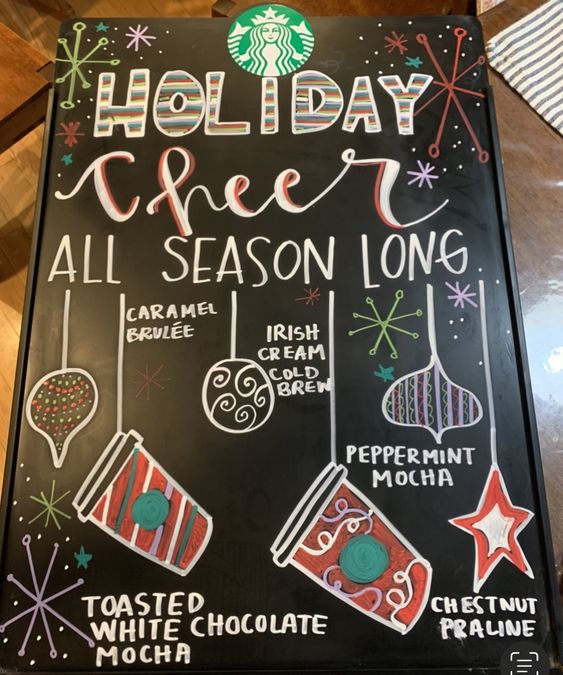 HOLIDAY
Cheer
ALL SEASON LONG
CARAMEL
BRULÉE
IRISH
CREAM
COLD
BREW
PEPPERMINT
MOCHA
TOASTED
WHITE CHOCOLATE
MOCHA
CHESTNUT
PRALINE